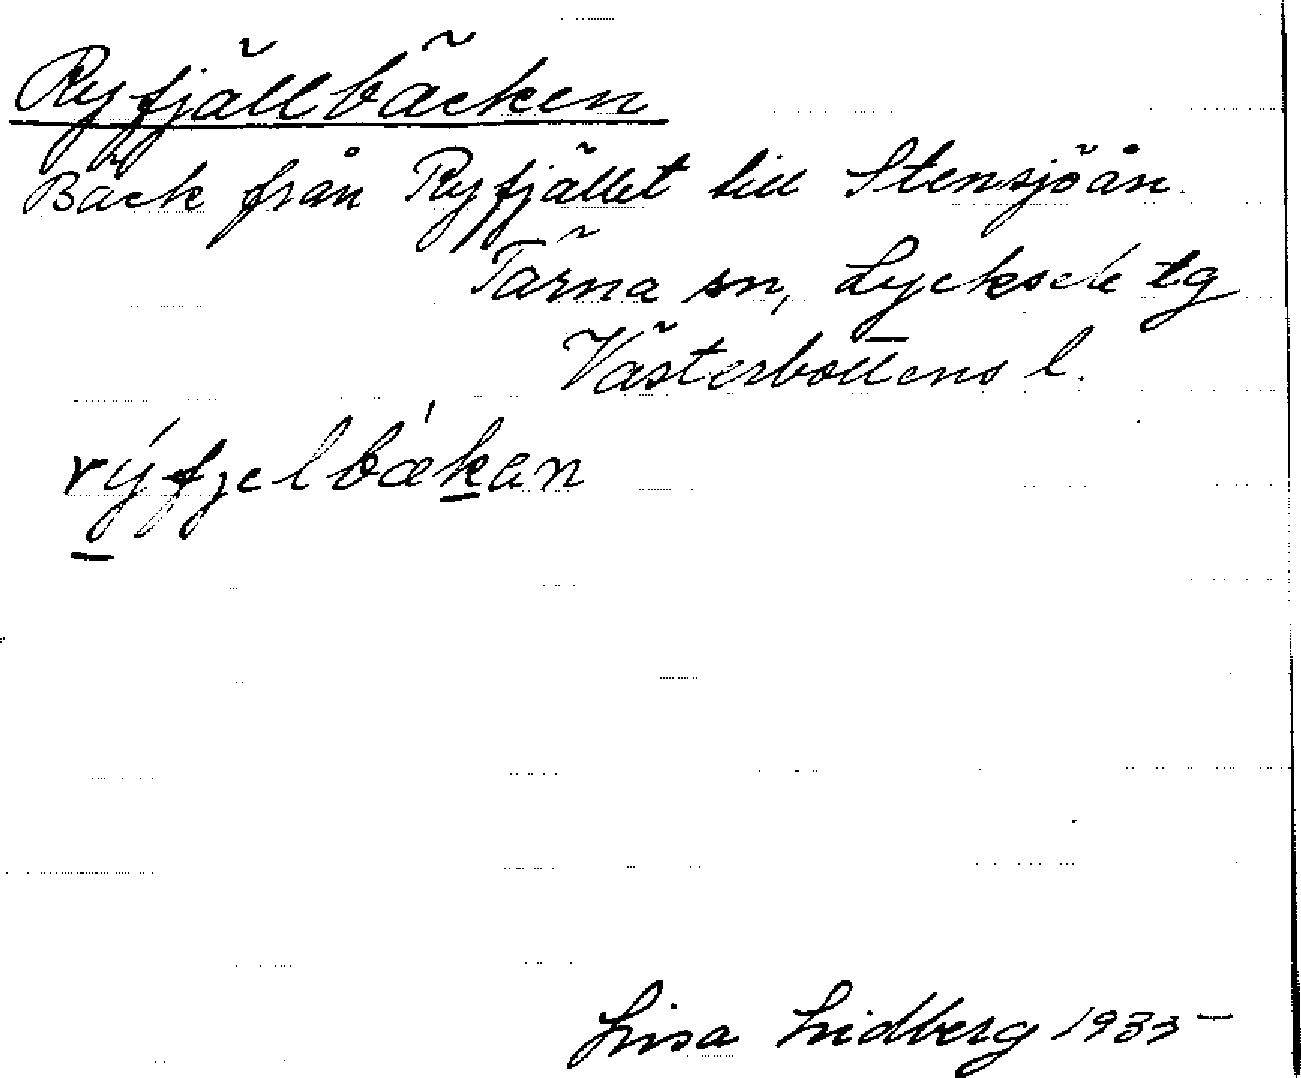 Ryfjällbäcken
Bäck från Ryfjället till Stensjöån.
Tärna sn, Lycksele tg
Västerbottens l.
rýfjelbækan
Lisa Lidberg 1933